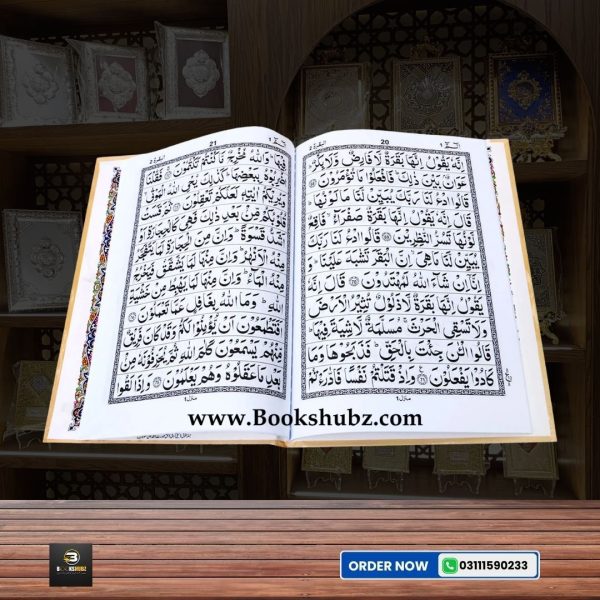 الٓمّٓ ١
20
البقرة ٢
اِنَّهٗ يَقُوْلُ اِنَّهَا بَقَرَةٌ لَّا فَارِضٌ وَّلَا بِكْرٌ ؕ
عَوَانٌۢ بَيْنَ ذٰلِكَ ؕ فَافْعَلُوْا مَا تُؤْمَرُوْنَ ﴿۶۸﴾
قَالُوا ادْعُ لَنَا رَبَّكَ يُبَيِّنْ لَّنَا مَا لَوْنُهَا ؕ
قَالَ اِنَّهٗ يَقُوْلُ اِنَّهَا بَقَرَةٌ صَفْرَآءُ ۙ فَاقِعٌ
لَّوْنُهَا تَسُرُّ النّٰظِرِيْنَ ﴿۶۹﴾ قَالُوا ادْعُ لَنَا رَبَّكَ
يُبَيِّنْ لَّنَا مَا هِىَ ۙ اِنَّ الْبَقَرَ تَشٰبَهَ عَلَيْنَا ؕ وَ
اِنَّاۤ اِنْ شَآءَ اللّٰهُ لَمُهْتَدُوْنَ ﴿۷۰﴾ قَالَ اِنَّهٗ
يَقُوْلُ اِنَّهَا بَقَرَةٌ لَّا ذَلُوْلٌ تُثِيْرُ الْاَرْضَ
وَلَا تَسْقِى الْحَرْثَ ۚ مُسَلَّمَةٌ لَّا شِيَةَ فِيْهَا ؕ
قَالُوا الْـٰٔنَ جِئْتَ بِالْحَقِّ ؕ فَذَبَحُوْهَا وَمَا
كَادُوْا يَفْعَلُوْنَ ﴿۷۱﴾ وَاِذْ قَتَلْتُمْ نَفْسًا فَادّٰرَءْتُمْ
منزل ١
الٓمّٓ ١
21
البقرة ٢
فِيْهَا ؕ وَاللّٰهُ مُخْرِجٌ مَّا كُنْتُمْ تَكْتُمُوْنَ ﴿۷۲﴾ فَقُلْنَا
اضْرِبُوْهُ بِبَعْضِهَا ؕ كَذٰلِكَ يُحْىِ اللّٰهُ الْمَوْتٰى ۙ
وَيُرِيْكُمْ اٰيٰتِهٖ لَعَلَّكُمْ تَعْقِلُوْنَ ﴿۷۳﴾ ثُمَّ قَسَتْ
قُلُوْبُكُمْ مِّنْۢ بَعْدِ ذٰلِكَ فَهِىَ كَالْحِجَارَةِ اَوْ
اَشَدُّ قَسْوَةً ؕ وَاِنَّ مِنَ الْحِجَارَةِ لَمَا يَتَفَجَّرُ
مِنْهُ الْاَنْهٰرُ ؕ وَاِنَّ مِنْهَا لَمَا يَشَّقَّقُ فَيَخْرُجُ
مِنْهُ الْمَآءُ ؕ وَاِنَّ مِنْهَا لَمَا يَهْبِطُ مِنْ خَشْيَةِ
اللّٰهِ ؕ وَمَا اللّٰهُ بِغَافِلٍ عَمَّا تَعْمَلُوْنَ ﴿۷۴﴾
اَفَتَطْمَعُوْنَ اَنْ يُّؤْمِنُوْا لَكُمْ وَقَدْ كَانَ فَرِيْقٌ
مِّنْهُمْ يَسْمَعُوْنَ كَلٰمَ اللّٰهِ ثُمَّ يُحَرِّفُوْنَهٗ مِنْۢ
بَعْدِ مَا عَقَلُوْهُ وَهُمْ يَعْلَمُوْنَ ﴿۷۵﴾ وَاِذَا لَقُوا
منزل ١
www.Bookshubz.com
B
BOOKSHUBZ
ORDER NOW
03111590233